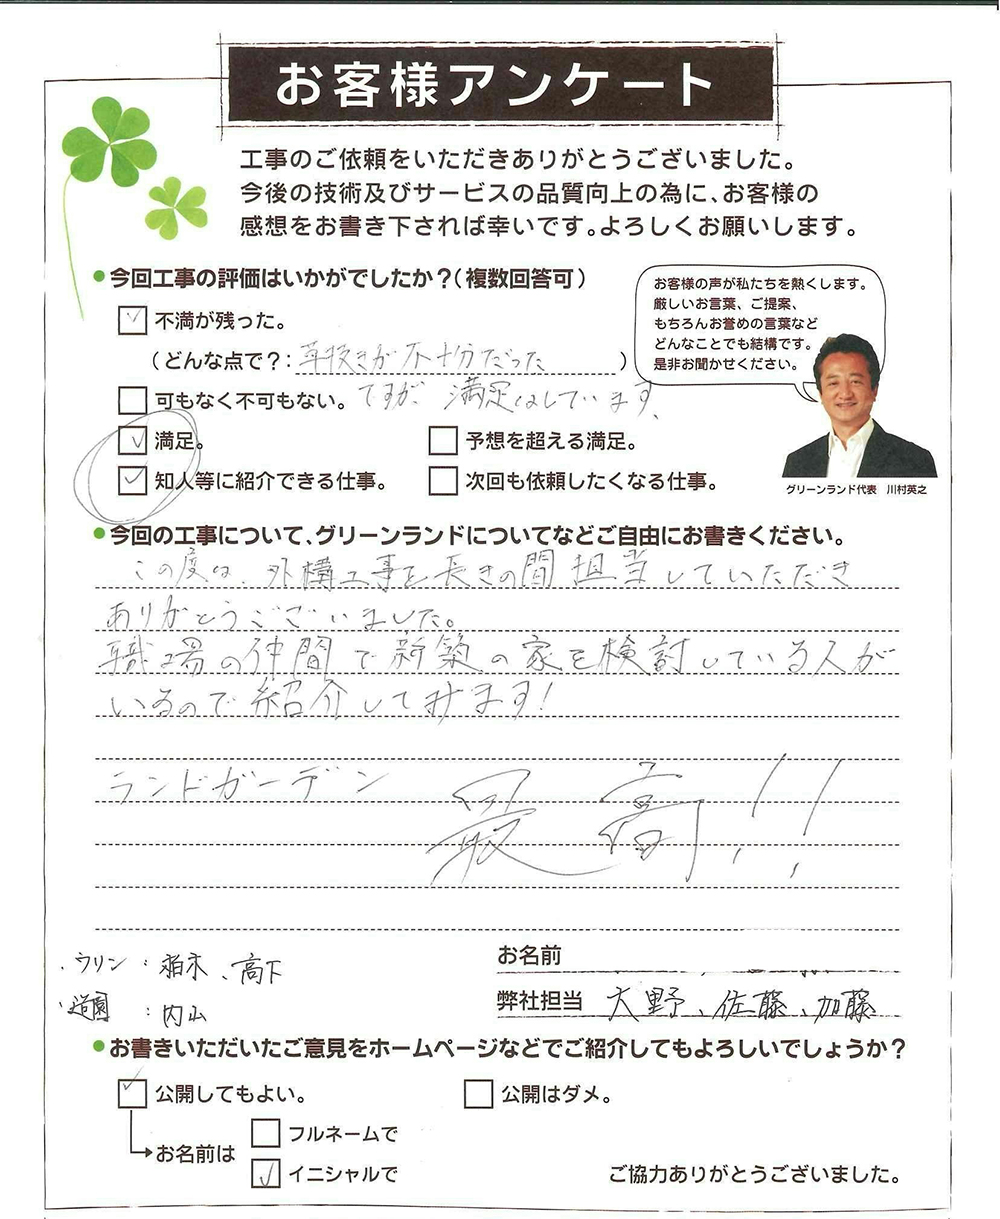 お客様アンケート
工事のご依頼をいただきありがとうございました。
今後の技術及びサービスの品質向上の為に、お客様の
感想をお書き下されば幸いです。よろしくお願いします。
●今回工事の評価はいかがでしたか？（複数回答可）
不満が残った。
（どんな点で？：草抜きが不十分だった）
可もなく不可もない。ですが 満足はしています、
満足。
予想を超える満足。
知人等に紹介できる仕事。
次回も依頼したくなる仕事。
お客様の声が私たちを熱くします。
厳しいお言葉、ご提案、
もちろんお誉めの言葉など
どんなことでも結構です。
是非お聞かせください。
グリーンランド代表 川村英之
●今回の工事について、グリーンランドについてなどご自由にお書きください。
この度は、外構工事を長きの間担当していただき
ありがとうございました。
職場の仲間で新築の家を検討している人が
いるので紹介してみます！
ランドガーデン 最高！！
お名前
・ウリン：柏木、高下
弊社担当 大野、佐藤、加藤
・造園：内山
●お書きいただいたご意見をホームページなどでご紹介してもよろしいでしょうか？
公開してもよい。
公開はダメ。
お名前は
フルネームで
イニシャルで
ご協力ありがとうございました。